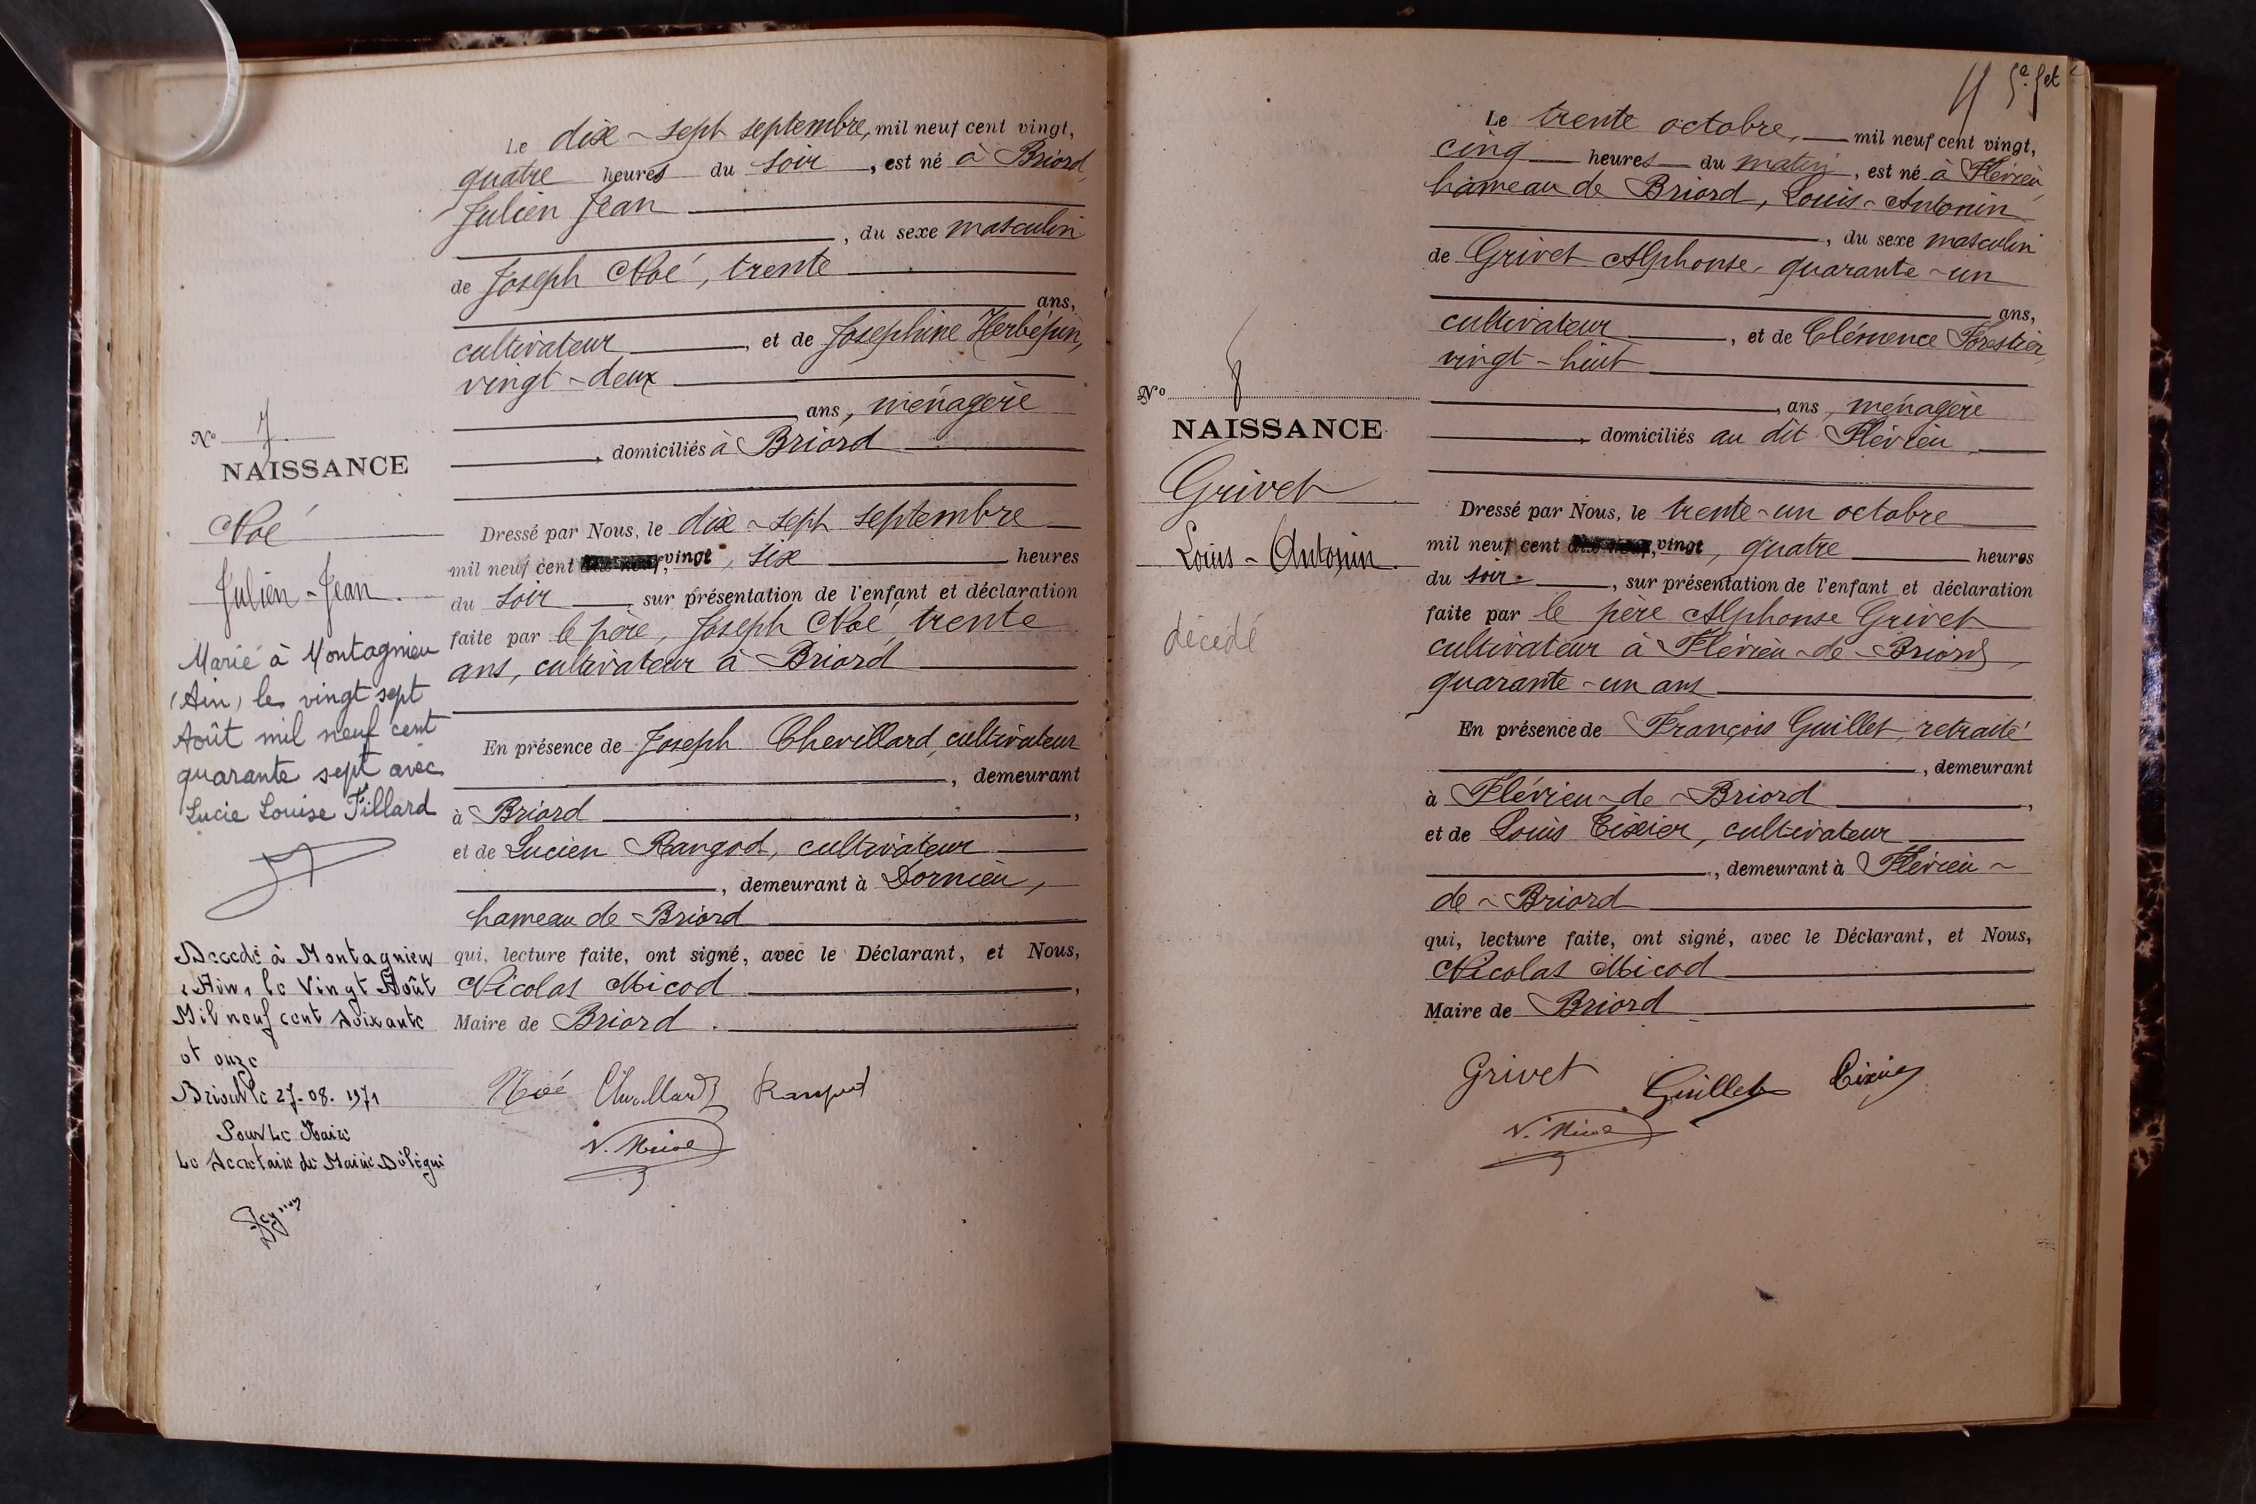 Le dix-sept septembre, mil neuf cent vingt,
quatre heures du soir, est né à Briord,
Julien Jean
, du sexe masculin
de Joseph Noé, trente
ans,
cultivateur, et de Josephine Herbépin,
vingt-deux
ans, ménagère
, domiciliés à Briord
Dressé par Nous, le dix-sept septembre
mil neuf cent vingt, six heures
du soir sur présentation de l'enfant et déclaration
faite par le père, Joseph Noé, trente
ans, cultivateur à Briord
En présence de Joseph Chevillard, cultivateur
, demeurant
à Briord,
et de Lucien Rangod, cultivateur
, demeurant à Dornieu,
hameau de Briord
qui, lecture faite, ont signé, avec le Déclarant, et Nous,
Nicolas Micod,
Maire de Briord.
Noé Chevillard Rangod
N. Micod
No 7
NAISSANCE
Noé
Julien-Jean.
Marié à Montagnieu
(Ain) le vingt sept
Août mil neuf cent
quarante sept avec
Lucie Louise Fillard
Décédé à Montagnieu
(Ain) le Vingt Août
Mil neuf cent soixante
et onze
Briord le 27-08-1971
Pour Le Maire
Le Secrétaire de Mairie Délégué
5e. fet
Le trente octobre, mil neuf cent vingt,
cinq heures du matin, est né à Flévieu,
hameau de Briord, Louis-Antonin
, du sexe masculin
de Grivet Alphonse, quarante-un
ans,
cultivateur, et de Clémence Forestier,
vingt-huit
, ans, ménagère
, domiciliés au dit Flévieu
Dressé par Nous, le trente-un octobre
mil neuf cent vingt, quatre heures
du soir, sur présentation de l'enfant et déclaration
faite par le père Alphonse Grivet
cultivateur à Flévieu-de-Briord,
quarante-un ans
En présence de François Guillet, retraité
, demeurant
à Flévieu-de-Briord,
et de Louis Tixier, cultivateur
, demeurant à Flévieu-
de-Briord
qui, lecture faite, ont signé, avec le Déclarant, et Nous,
Nicolas Micod
Maire de Briord
Grivet Guillet Tixier
N. Micod
No 8
NAISSANCE
Grivet
Louis-Antonin.
décédé